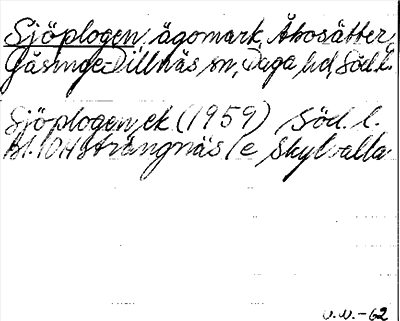 Sjöplogen, ägomark, Åbosätter,
Gåsinge-Dillnäs sn, Daga hd, Södl.
Sjöplogen, ek (1959) Söd. l.
Bl. 10H Strängnäs (e Skylvalla
V.W.-62